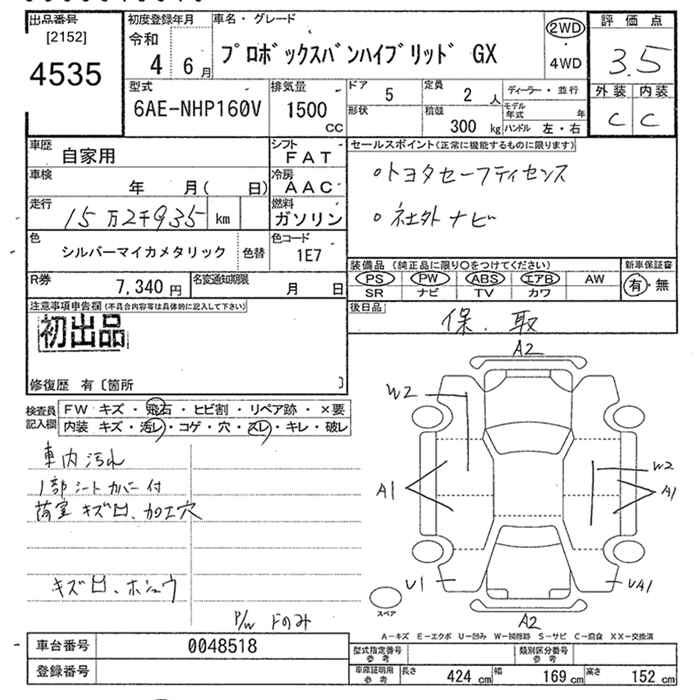 出品番号
[2152]
4535
初度登録年月
令和
4 6月
車名・グレード
プロボックスバンハイブリッド GX
2WD
・
4WD
評価点
3.5
外装 内装
C C
型式
6AE-NHP160V
排気量
1500
cc
ドア
5
形状
定員
2 人
積載
300 kg
ディーラー・並行
モデル年式 年
ハンドル 左・右
車歴
自家用
シフト
FAT
車検
年 月( 日)
冷房
AAC
走行
15万2千935 km
燃料
ガソリン
色
シルバーマイカメタリック
色替
色コード
1E7
R券
7,340 円
名変通知期限
月 日
セールスポイント(正常に機能するものに限ります)
○トヨタセーフティセンス
○社外ナビ
装備品 (純正品に限り〇をつけてください)
PS PW ABS エアB AW
SR ナビ TV カワ
新車保証書
有・無
後日品
保.取
注意事項申告欄(不具合内容等は具体的に記入して下さい)
初出品
修復歴 有〔箇所 〕
検査員記入欄
FW キズ・飛石・ヒビ割・リペア跡・×要
内装 キズ・汚レ・コゲ・穴・スレ・キレ・破レ
車内汚れ
1部シートカバー付
荷室キズ凹、加工穴
キズ凹、ホシュウ
P/W Fのみ
A2
W2
A1
W2
A1
U1
UA1
スペア
A2
A-キズ E-エクボ U-凹み W-補修跡 S-サビ C-腐食 XX-交換済
車台番号
0048518
登録番号
型式指定番号
参考
類別区分番号
参考
車庫証明用
参考
長さ
424 cm
幅
169 cm
高さ
152 cm